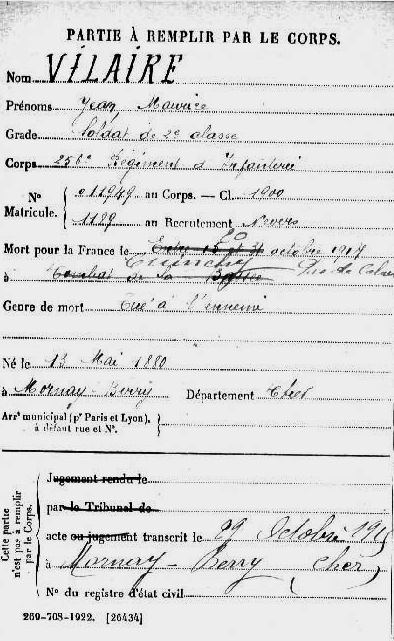 PARTIE À REMPLIR PAR LE CORPS.
Nom VILAIRE
Prénoms Jean Maurice
Grade Soldat de 2e classe
Corps 256e Régiment d'Infanterie
No Matricule. 011949 au Corps. — Cl. 1900
1129 au Recrutement Nevers
20
Mort pour la France le Entre 15 et octobre
Cuinchy Pas de Calais
à Combat de La Bassée
Genre de mort Tué à l'ennemi
Né le 13 Mai 1880
à Mornay-Berry Département Cher
Arrt municipal (pr Paris et Lyon), à défaut rue et No.
Cette partie n'est pas à remplir par le Corps.
Jugement rendu le
par le Tribunal de
acte ou jugement transcrit le 29 Octobre
à Mornay-Berry (Cher)
No du registre d'état civil
269-708-1922. [26434]